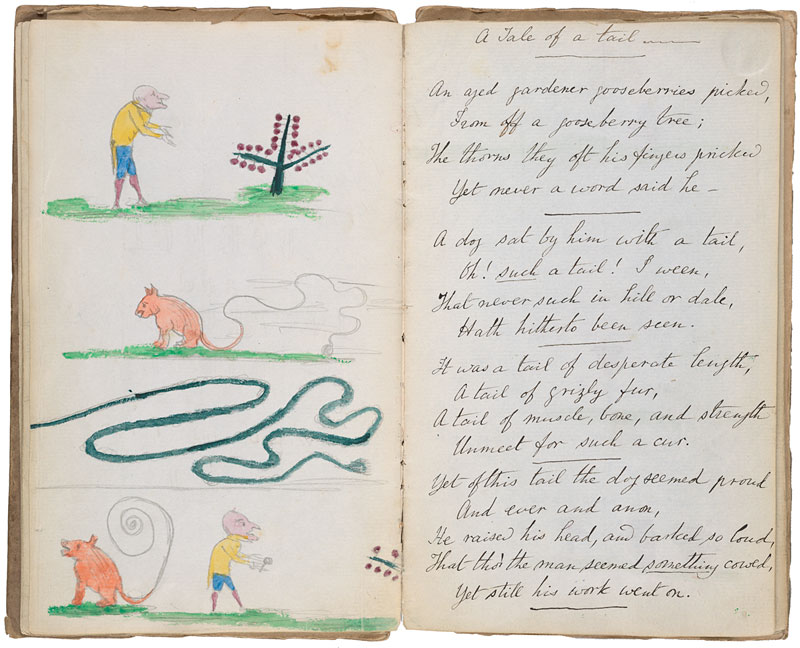 A Tale of a tail
An aged gardener gooseberries picked,
From off a gooseberry tree;
The thorns they oft his fingers pricked
Yet never a word said he –
A dog sat by him with a tail,
Oh! such a tail! I ween,
That never such in hill or dale,
Hath hitherto been seen.
It was a tail of desperate length,
A tail of grizly fur,
A tail of muscle, bone, and strength
Unmeet for such a cur.
Yet of this tail the dog seemed proud
And ever and anon,
He raised his head, and barked so loud,
That tho' the man seemed something cowed,
Yet still his work went on.